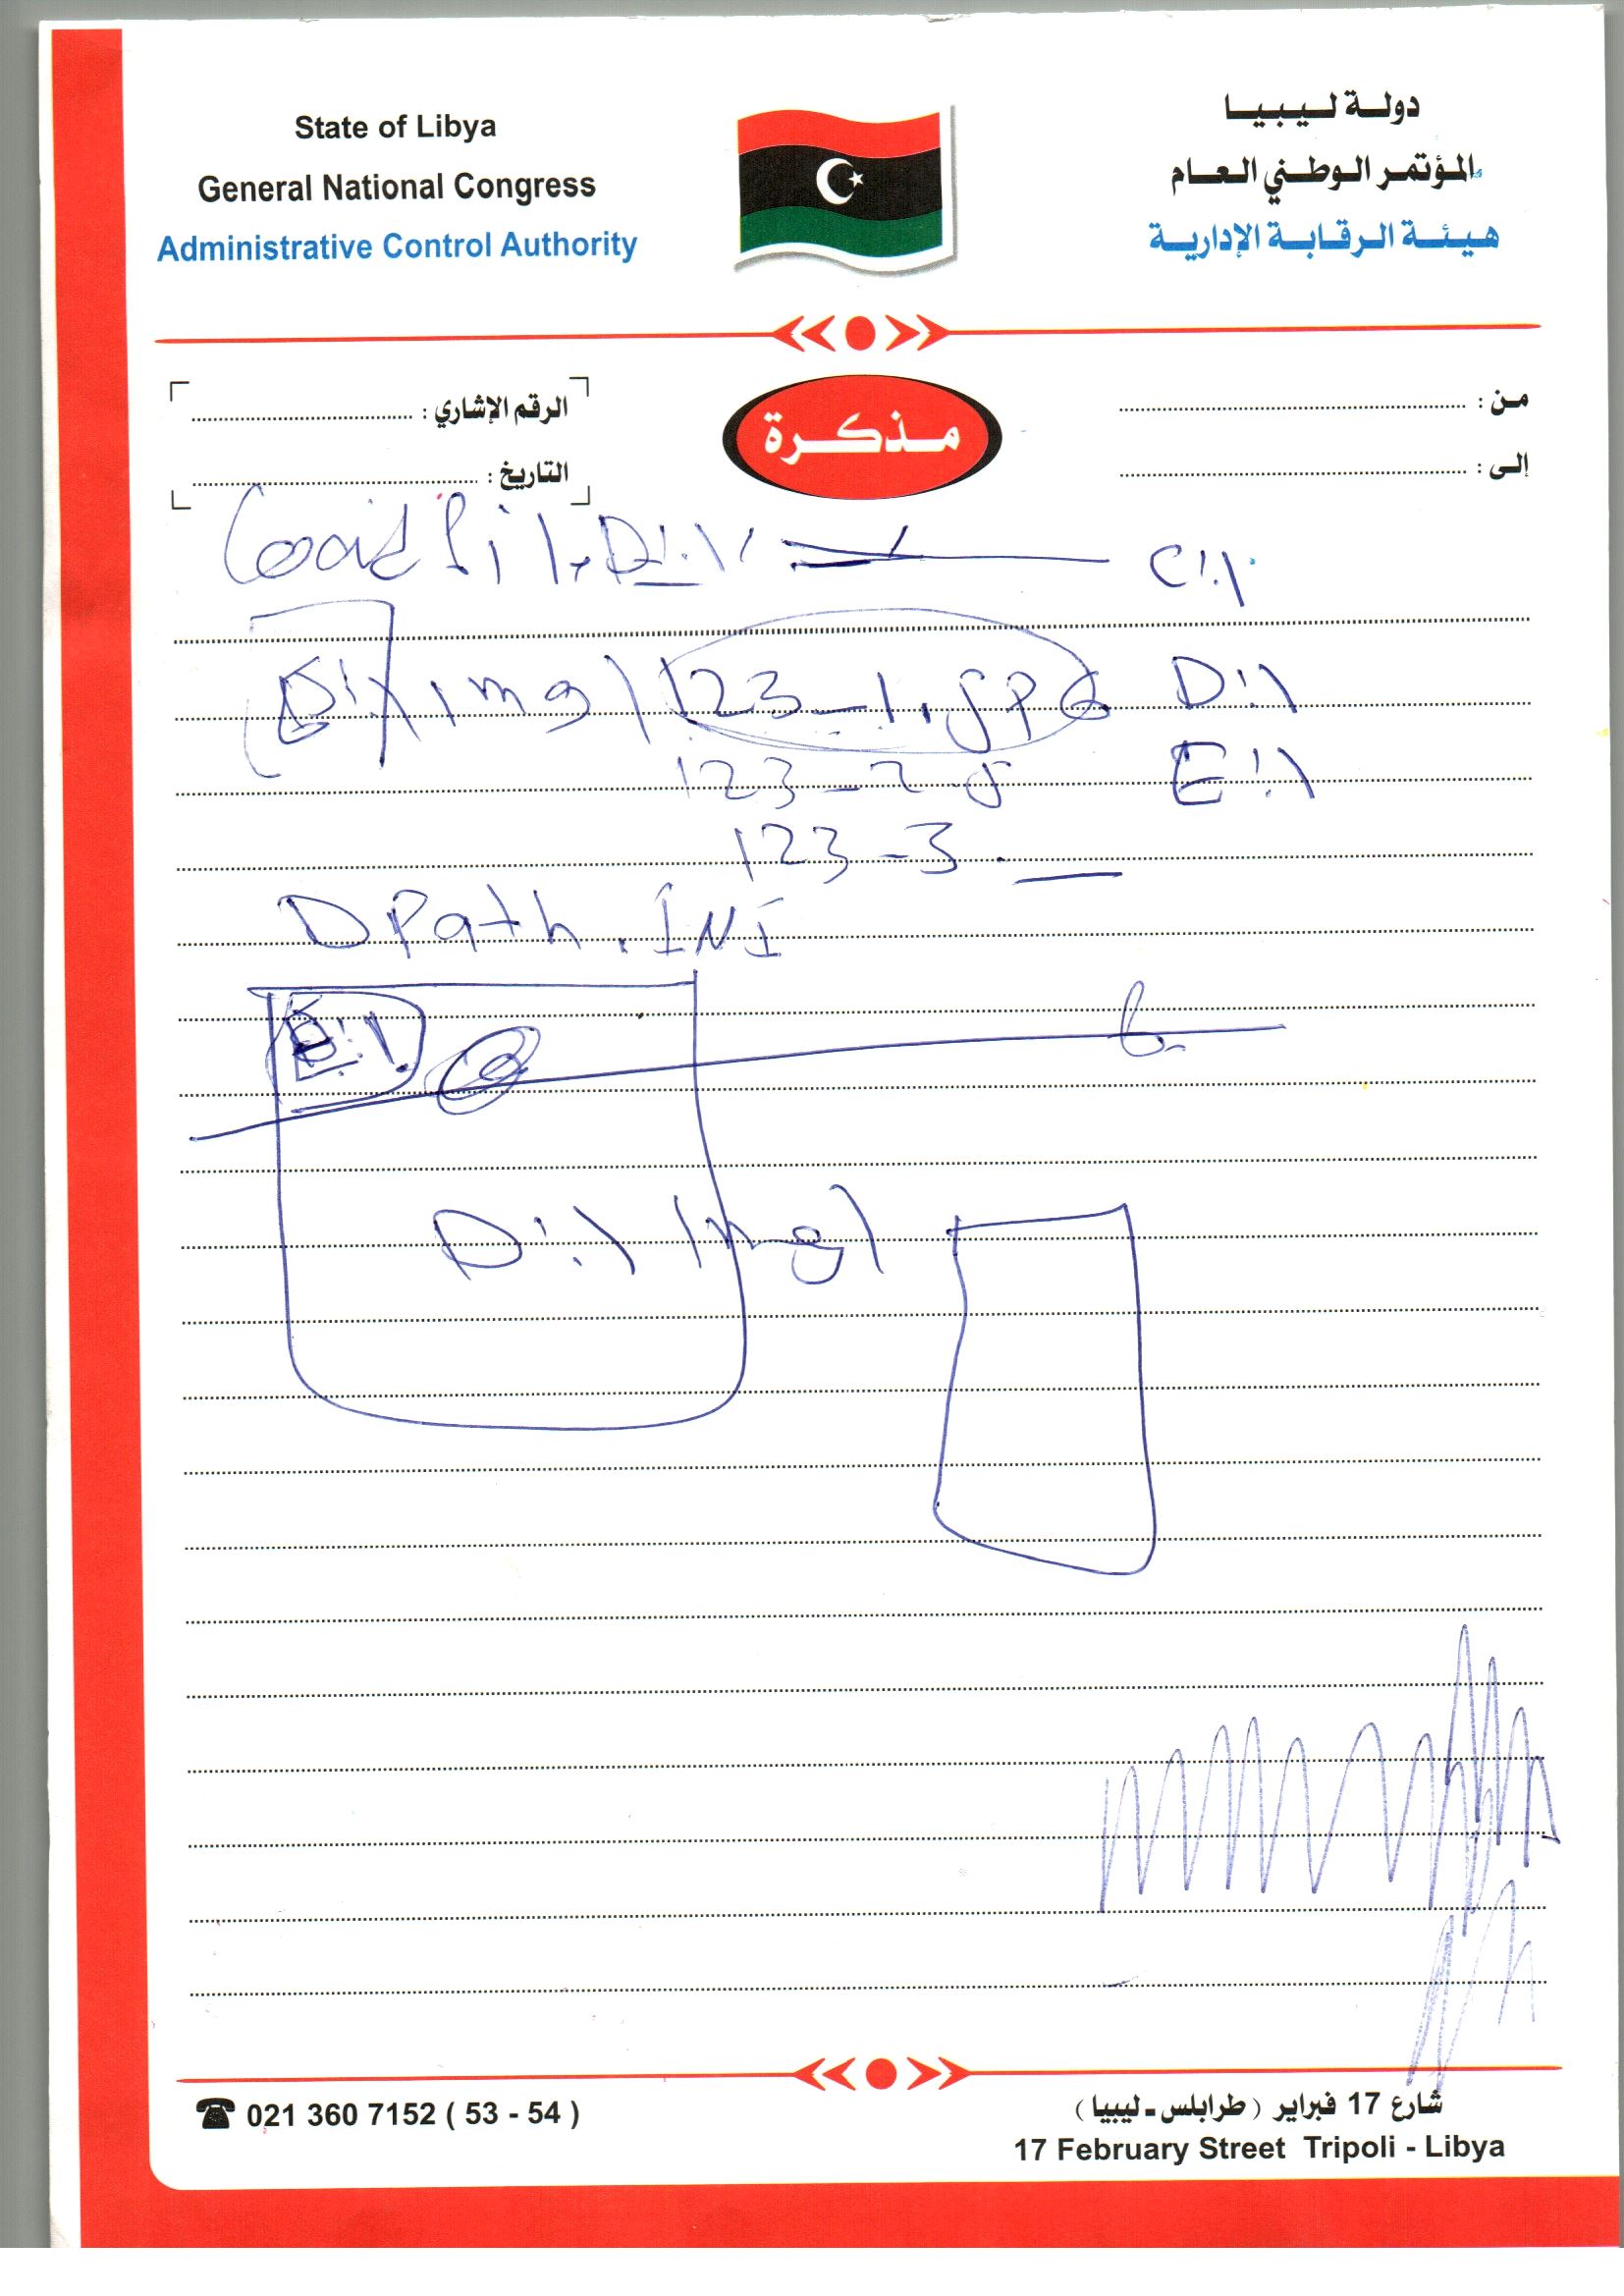 State of Libya
General National Congress
Administrative Control Authority
دولة ليبيا
المؤتمر الوطني العام
هيئة الرقابة الإدارية
من :
إلى :
مذكرة
الرقم الإشاري :
التاريخ :
D:\ C:\
D:\img\123-1.JPG D:\
123-2.J E:\
123-3.
DPath.INI
D:\Img\
021 360 7152 ( 53 - 54 )
شارع 17 فبراير ( طرابلس - ليبيا )
17 February Street Tripoli - Libya